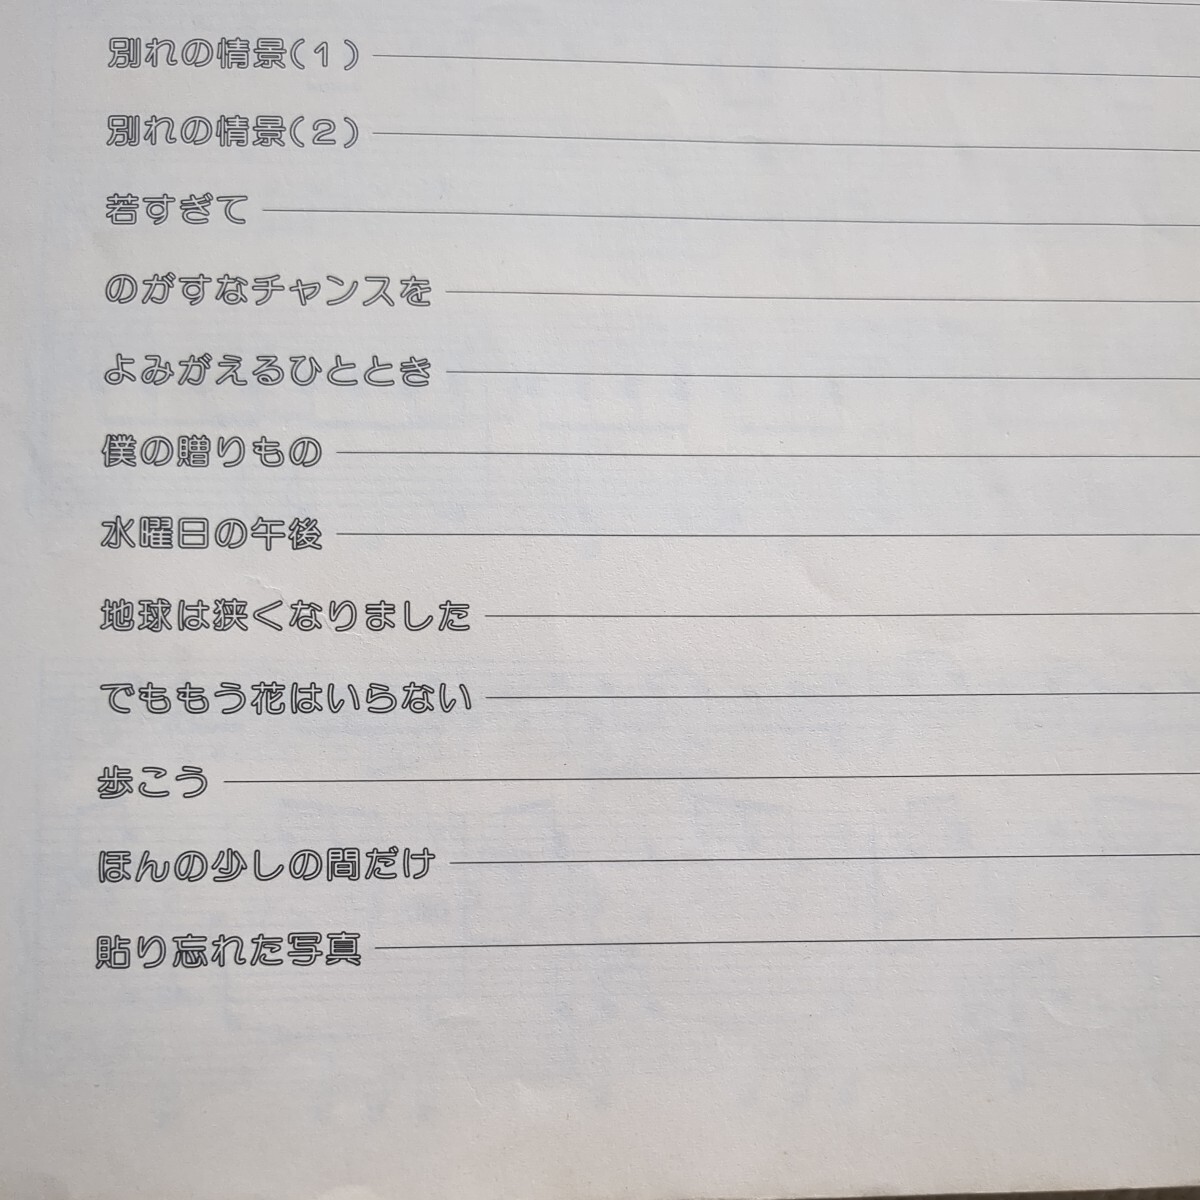 別れの情景(1)
別れの情景(2)
若すぎて
のがすなチャンスを
よみがえるひととき
僕の贈りもの
水曜日の午後
地球は狭くなりました
でももう花はいらない
歩こう
ほんの少しの間だけ
貼り忘れた写真